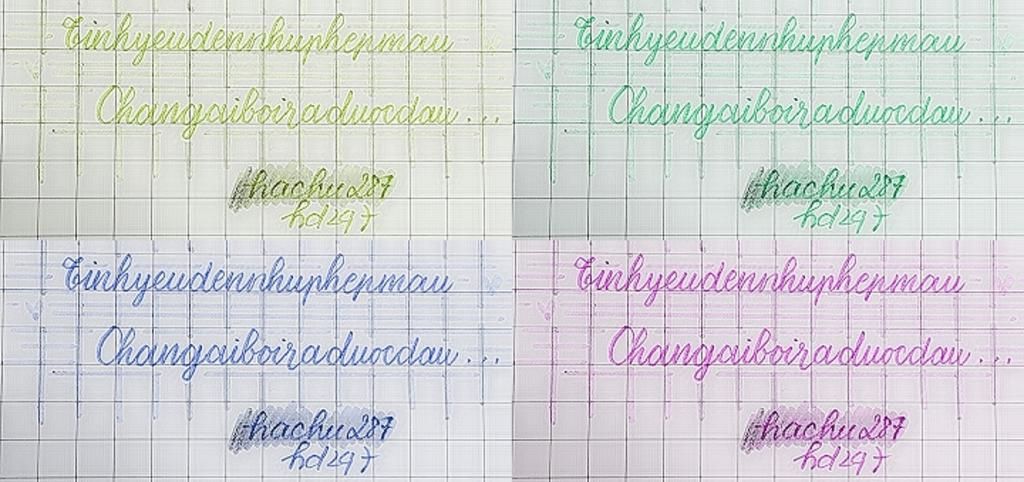 Tinhyeudennhuphepmau
Changaiboiraduocdau...
hachu287
hd297
Tinhyeudennhuphepmau
Changaiboiraduocdau...
hachu287
hd297
Tinhyeudennhuphepmau
Changaiboiraduocdau...
hachu287
hd297
Tinhyeudennhuphepmau
Changaiboiraduocdau...
hachu287
hd297